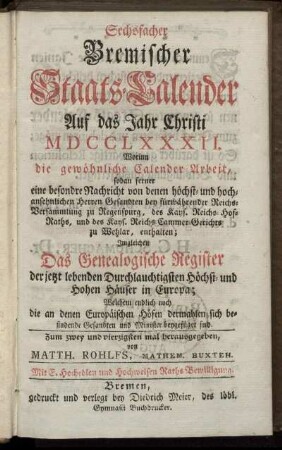 Sechsfacher
Bremischer
Staats-Calender
Auf das Jahr Christi
MDCCLXXXII.
Worinn
die gewöhnliche Calender Arbeit,
sodan ferner
eine besondre Nachricht von denen höchst- und hoch-
ansehnlichen Herren Gesandten bey fürwährender Reichs-
Versammlung zu Regenspurg, des Kays. Reichs-Hof-
Raths, und des Kays. Reichs Cammer-Gerichts
zu Wetzlar, enthalten;
Imgleichen
Das Genealogische Register
der jetzt lebenden Durchlauchtigsten Höchst- und
Hohen Häuser in Europa;
Welchem endlich noch
die an denen Europäischen Höfen dermahlen sich be-
findende Gesandten und Minister beygefüget sind.
Zum zwey und vierzigsten mal herausgegeben,
von
MATTH. ROHLFS, MATHEM. BUXTEH.
Mit E. Hochedlen und Hochweisen Raths Bewilligung.
Bremen,
gedruckt und verlegt bey Diedrich Meier, des löbl.
Gymnasii Buchdrucker.